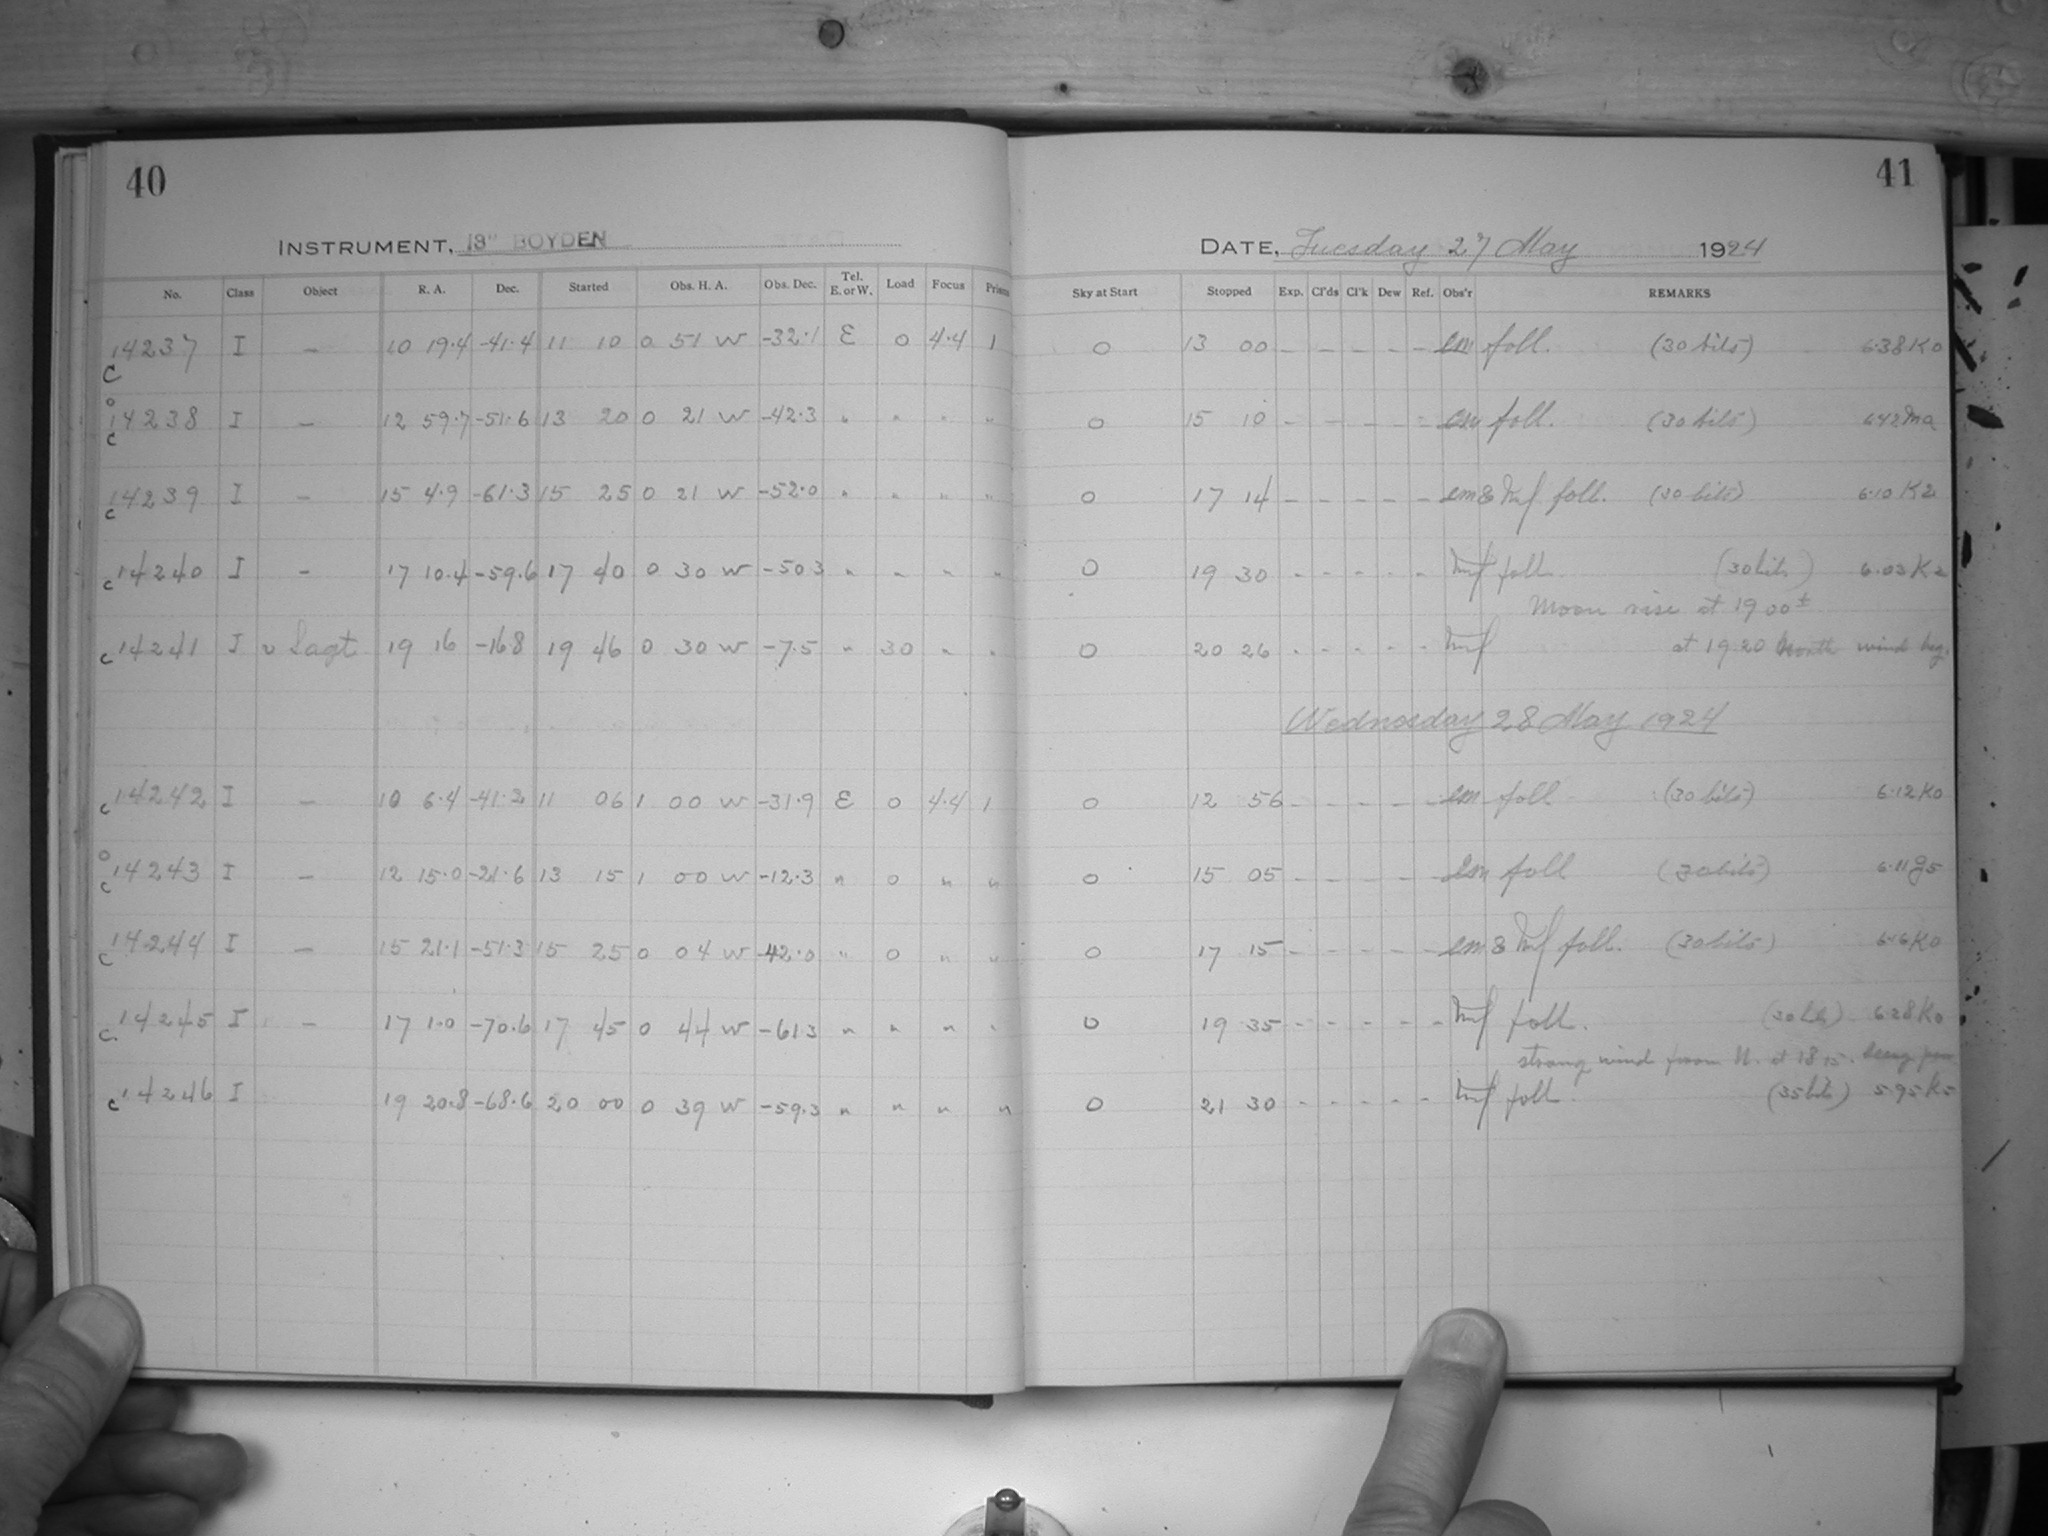 40
41
INSTRUMENT, 13" BOYDEN
DATE, Tuesday 27 May 1924
No. Class Object R. A. Dec. Started Obs. H. A. Obs. Dec. Tel. E. or W. Load Focus Prism Sky at Start Stopped Exp. Cl'ds Cl'k Dew Ref. Obs'r REMARKS
c 14237 I – 10 19.4 -41.4 11 10 0 51 W -32.1 E 0 4.4 1 0 13 00 – – – – – em foll. (30 bits) 6.38 K0
c 14238 I – 12 59.7 -51.6 13 20 0 21 W -42.3 " " " " 0 15 10 – – – – – em foll. (30 bits) 6.42 Ma
c 14239 I – 15 4.9 -61.3 15 25 0 21 W -52.0 " " " " 0 17 14 – – – – – em & Mf foll. (30 bits) 6.10 K2
c 14240 I – 17 10.4 -59.6 17 40 0 30 W -50.3 " " " " 0 19 30 – – – – – Mf foll. (30 bits) 6.03 K2
Moon rise at 19 00 ±
c 14241 I v Sagt 19 16 -16.8 19 46 0 30 W -7.5 " 30 " " 0 20 26 – – – – – Mf at 19 20 North wind beg.
Wednesday 28 May 1924
c 14242 I – 10 6.4 -41.2 11 06 1 00 W -31.9 E 0 4.4 1 0 12 56 – – – – – em foll (30 bits) 6.12 K0
c 14243 I – 12 15.0 -21.6 13 15 1 00 W -12.3 " 0 " " 0 15 05 – – – – – em foll (30 bits) 6.11 G5
c 14244 I – 15 21.1 -51.3 15 25 0 04 W -42.0 " 0 " " 0 17 15 – – – – – em & Mf foll. (30 bits) K0
c 14245 I – 17 1.0 -70.6 17 45 0 44 W -61.3 " " " " 0 19 35 – – – – – Mf foll. (30 bits) 6.28 K0
strong wind from N. at 18 15.
c 14246 I 19 20.8 -68.6 20 00 0 39 W -59.3 " " " " 0 21 30 – – – – – Mf foll. (35 bits) 5.95 K5